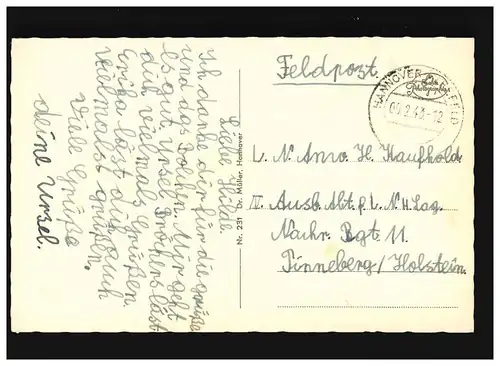 Liebe Hilde.
Ich danke dir für die Grüße
und das Fohlen. Mir geht
es gut. Ursel läst
dich vielmals Grüßen.
Erika läst dich auch
vielmalst grüßen.
Viele Grüße
deine Ursel.
Nr. 231 Dr. Müller, Hannover
Feldpost
HANNOVER
L. N. H. Kaufhold
IV Ausb. Abt. f. L. N. H.
Nachr. Rgt 11
Pinneberg/Holstein.